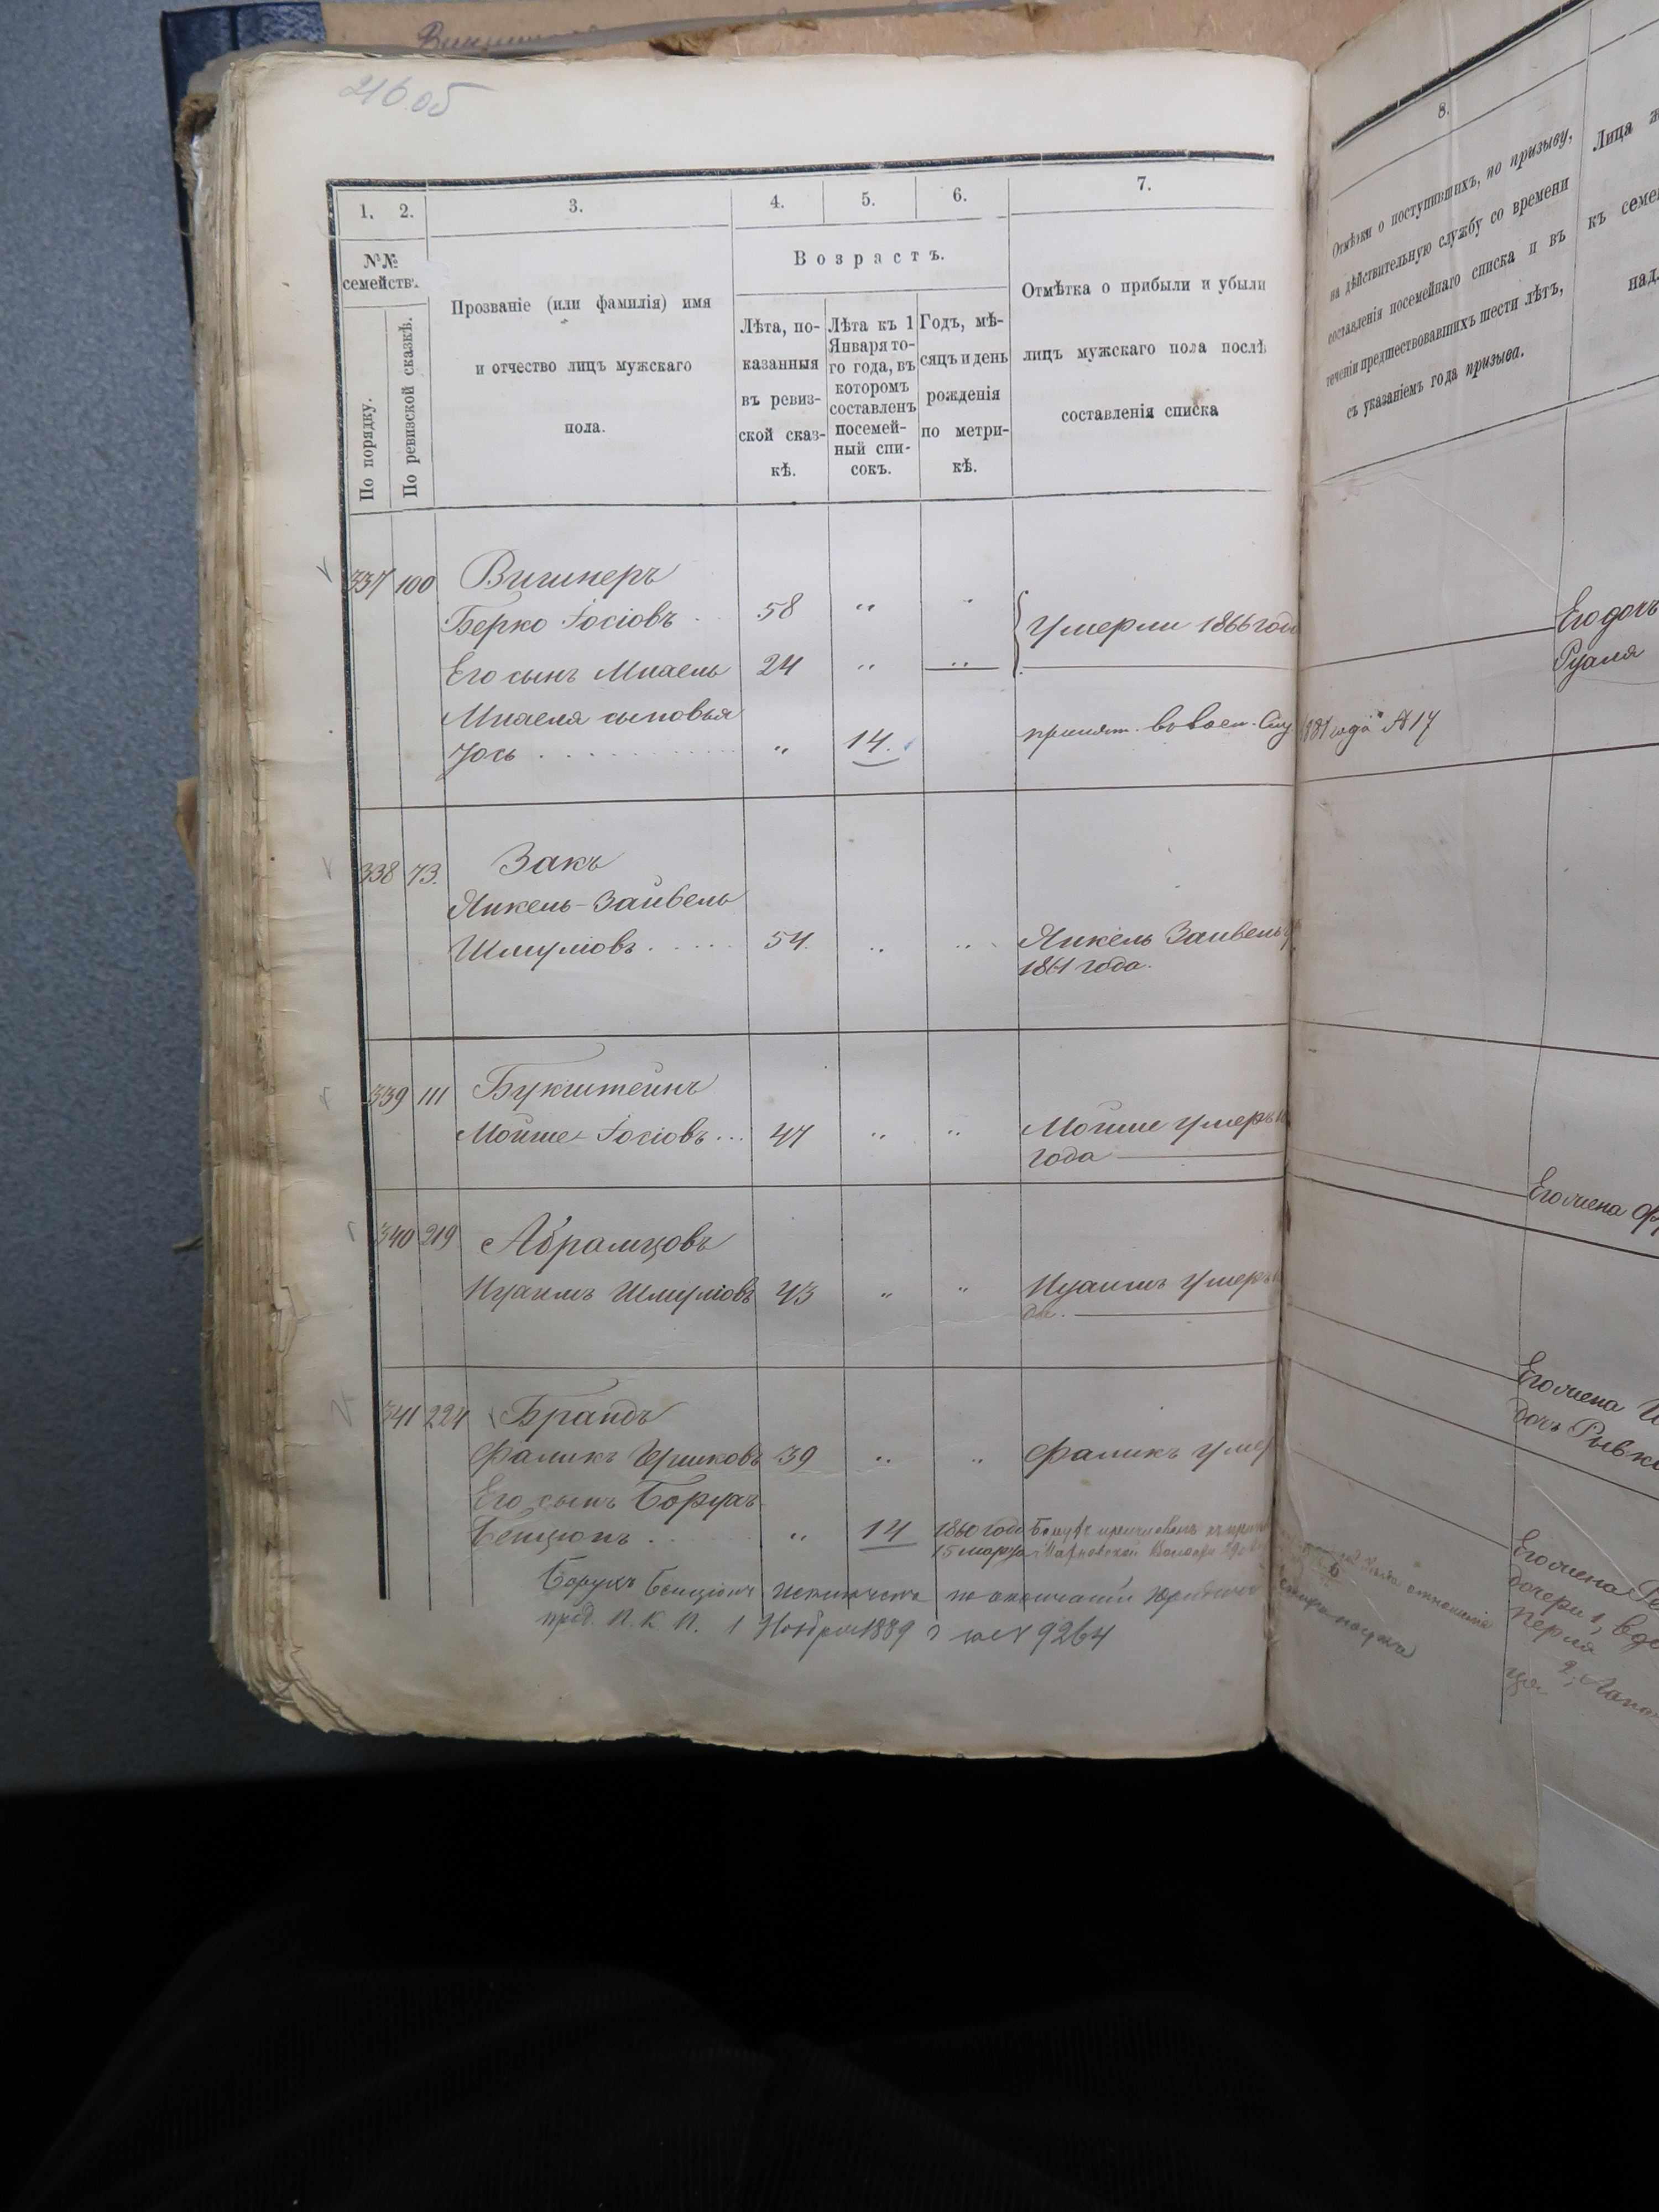 216 об
1. 2. 3. 4. 5. 6. 7.
№№ семействъ.
По порядку.
По ревизской сказкѣ.
Прозваніе (или фамилія) имя
и отчество лицъ мужскаго
пола.
Возрастъ.
Лѣта, по-
казанныя
въ ревиз-
ской сказ-
кѣ.
Лѣта къ 1
Января то-
го года, въ
которомъ
составленъ
посемей-
ный спи-
сокъ.
Годъ, мѣ-
сяцъ и день
рожденія
по метри-
кѣ.
Отмѣтка о прибыли и убыли
лицъ мужскаго пола послѣ
составленія списка
337 100 Вигинеръ
Берко Іосіовъ 58 " " Умерли 1866 год
Его сынъ Михель 24 " "
Михеля сыновья
Іось " 14. принят. въ воен. Слу 1881 года № 17
338 73. Закъ
Янкель-Зайвель
Шмуліовъ 54. " " Янкель Зайвель
1861 года.
339 111 Букштейнъ
Мойше Іосіовъ 47 " " Мойше Умеръ
года
340 219 Абрамцовъ
Нухимъ Шмуліовъ 43 " " Нухимъ Умеръ
да.
341 224 Брандъ
Фаликъ Гершковъ 39 " " Фаликъ Умер
Его сынъ Борухъ
Бенціонъ " 14 1860 года
15 марта
Борухъ Бенціонъ исключенъ по окончаніи
пред. П. К. П. 1 Ноября 1889 г за № 9264
8.
Отмѣтки о поступившихъ, по призыву,
на дѣйствительную службу со времени
составленія посемейнаго списка и въ
теченіи предшествовавшихъ шести лѣтъ,
съ указаніемъ года призыва.
Лица ж
къ семе
над
Его дочь
Рухля
Его жена
Его жена
дочь Рывка
Его жена
дочери 1,
Перля
2,